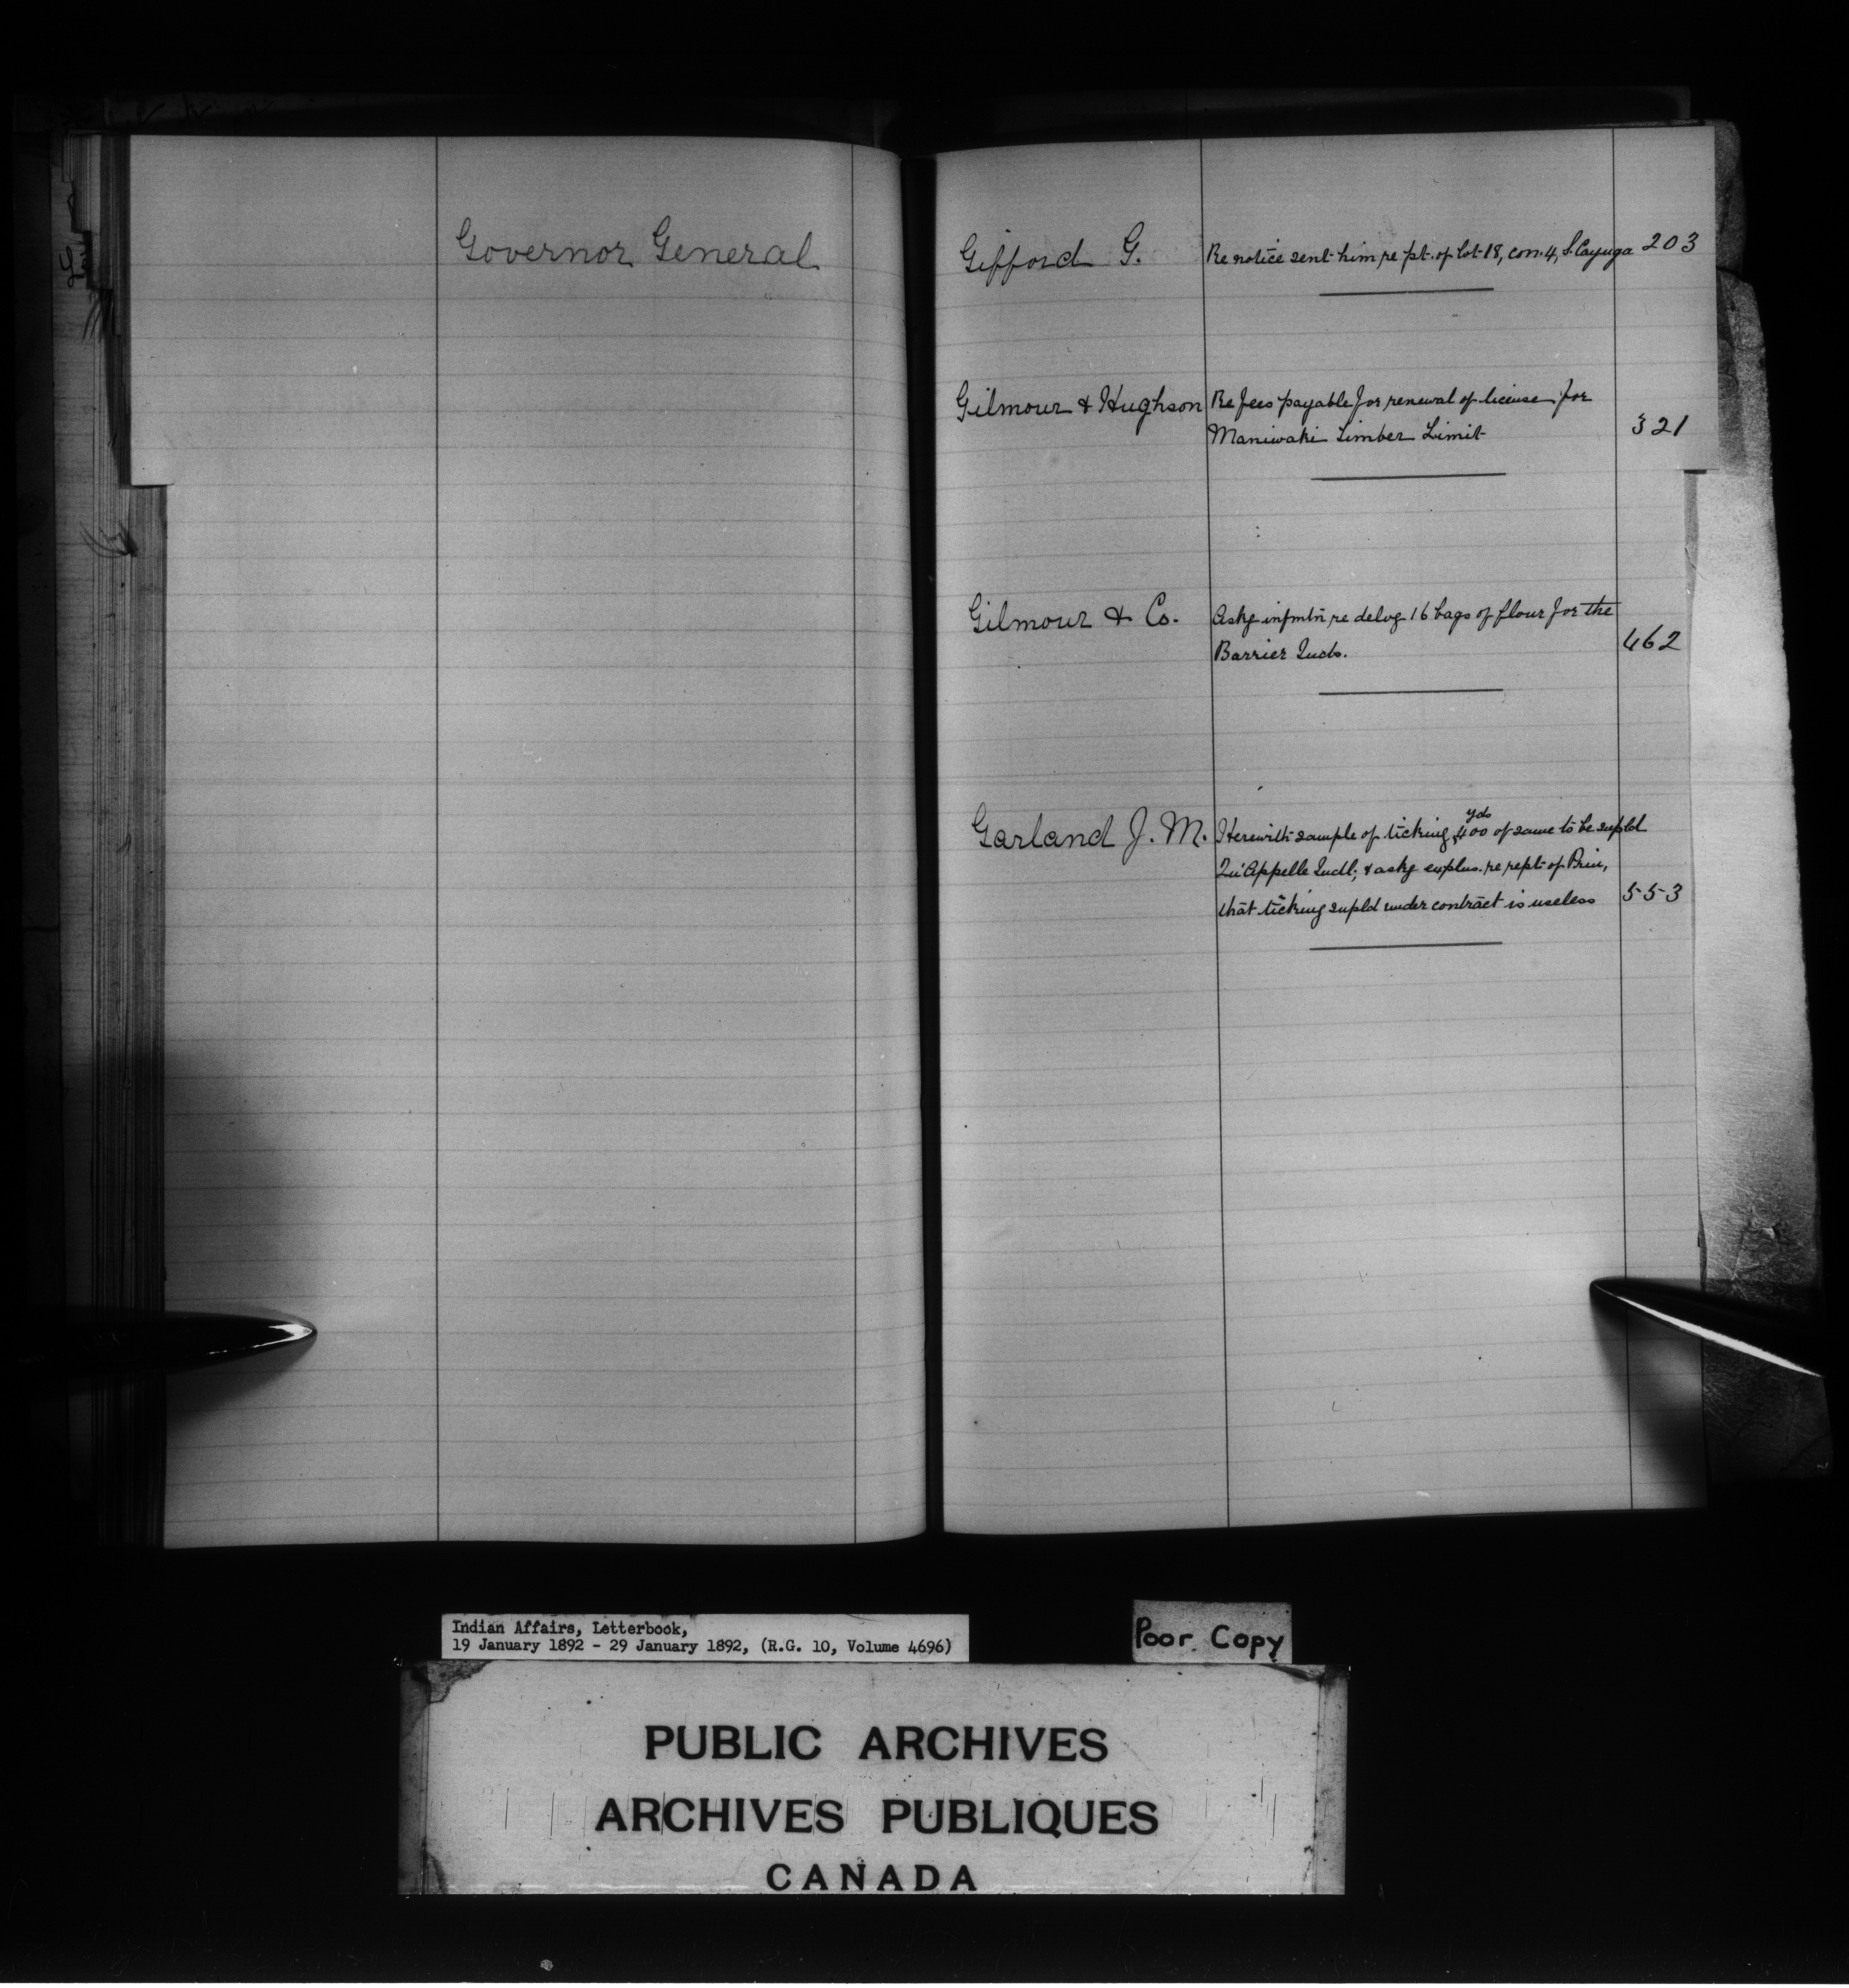 Governor General
Gifford G. Re notice sent him re pt. of lot 18, con. 4, S. Cayuga 203
Gilmour & Hughson Re fees payable for renewal of license for
Maniwaki Timber Limit 321
Gilmour & Co. Askg infmtn re delvg 16 bags of flour for the
Barrier Inds. 462
yds
Garland J. M. Herewith sample of ticking, 400 of same to be supld
Qu'Appelle Indl; & askg explns. re rept of Prin,
that ticking supld under contract is useless 553
Indian Affairs, Letterbook,
19 January 1892 - 29 January 1892, (R.G. 10, Volume 4696)
Poor Copy
PUBLIC ARCHIVES
ARCHIVES PUBLIQUES
CANADA